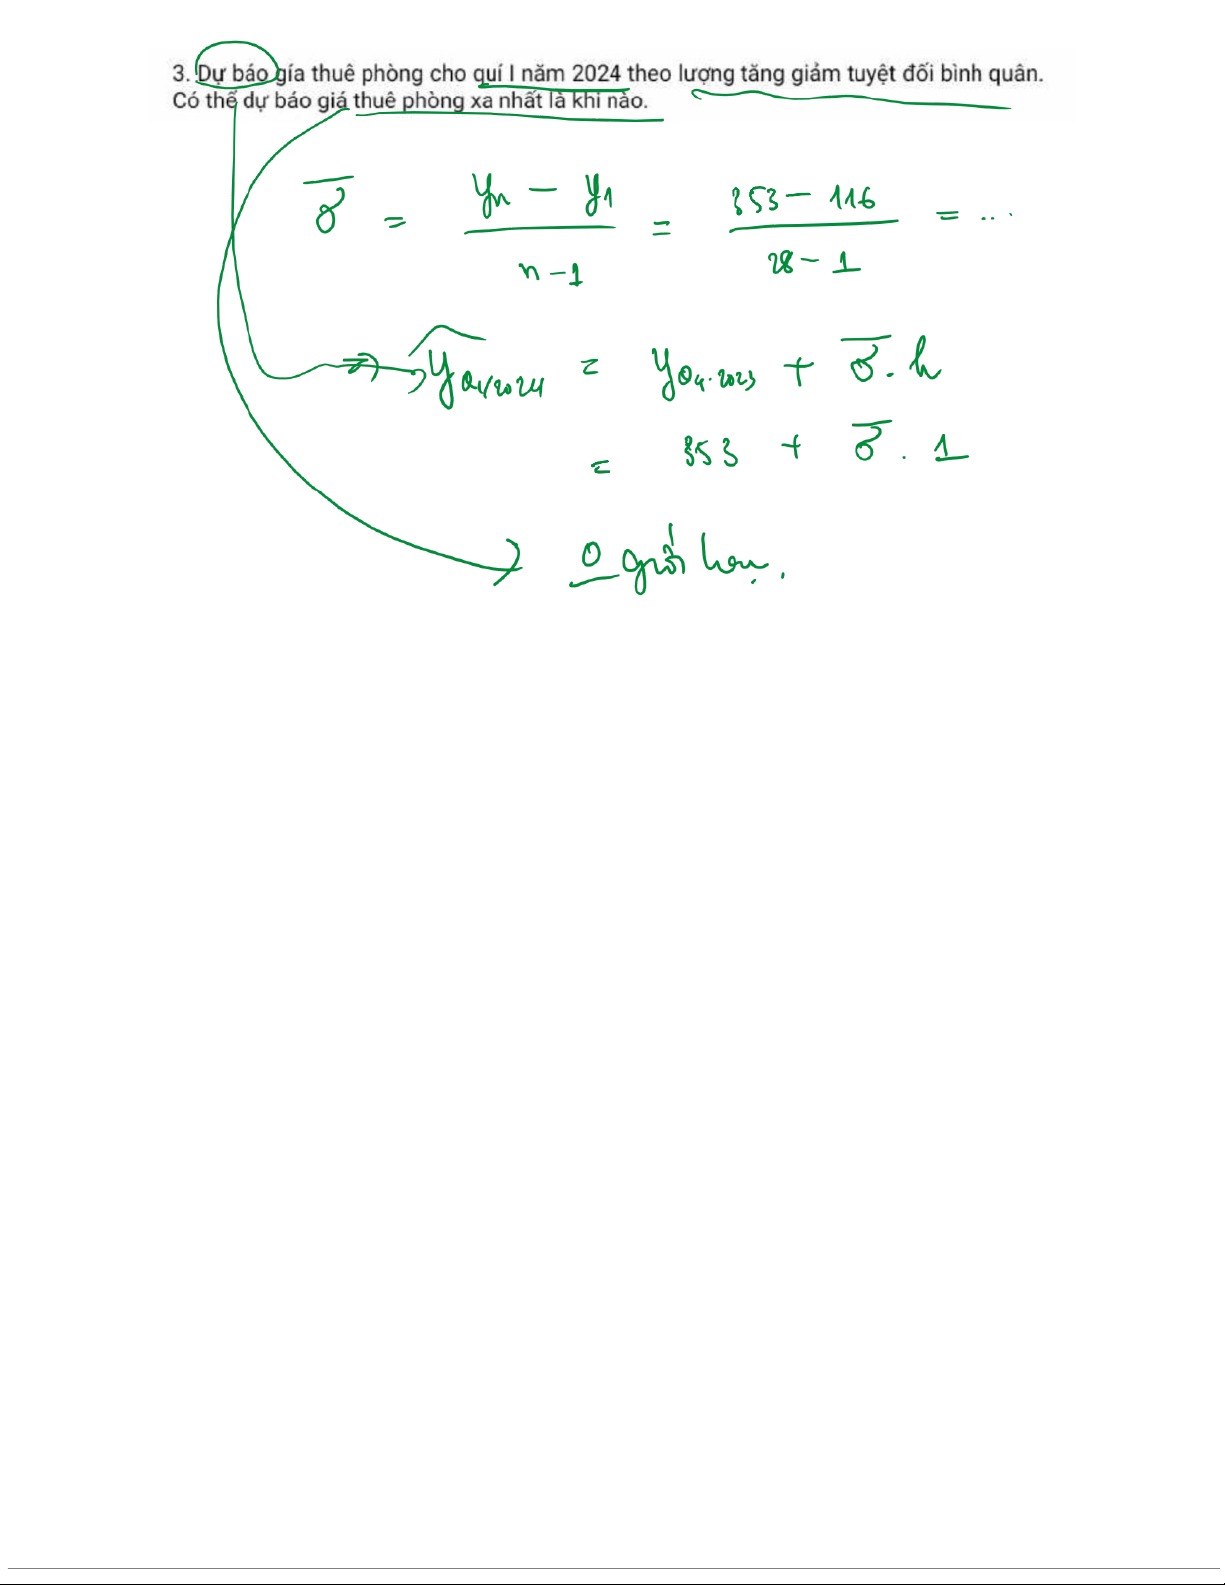 3. Dự báo gía thuê phòng cho quí I năm 2024 theo lượng tăng giảm tuyệt đối bình quân.
Có thể dự báo giá thuê phòng xa nhất là khi nào.
δ̄ = (yn − y1) / (n − 1) = (353 − 116) / (28 − 1) = ...
⇒ ŷQ1/2024 = yQ4.2023 + δ̄ . h
= 353 + δ̄ . 1
0 giới hạn.